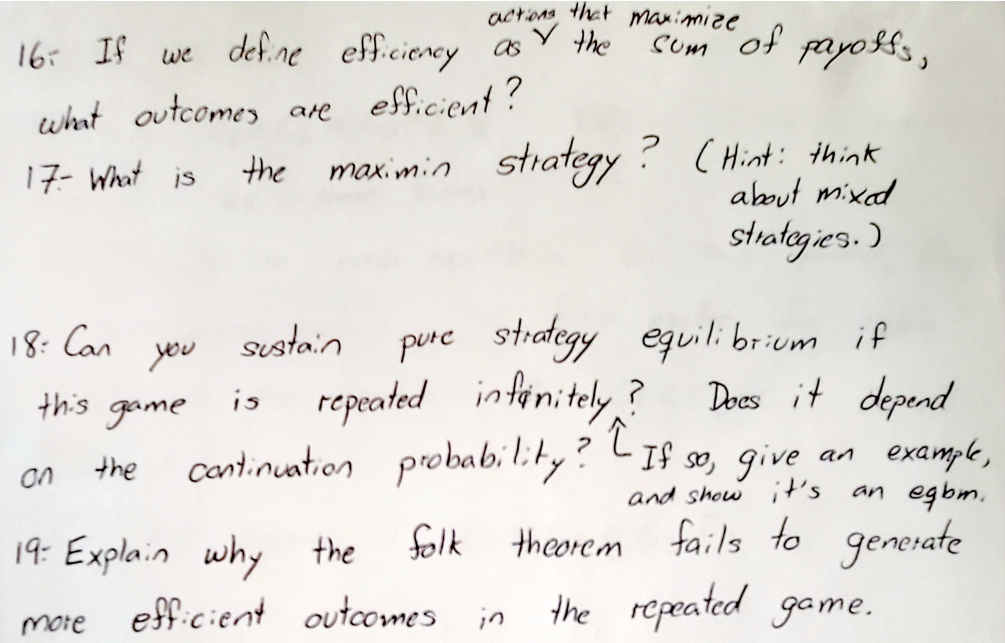 actions that maximize
16- If we define efficiency as ˅ the sum of payoffs,
what outcomes are efficient?
17- What is the maximin strategy? (Hint: think
about mixed
strategies.)
18- Can you sustain pure strategy equilibrium if
this game is repeated infinitely? Does it depend
on the continuation probability? ↑ If so, give an example,
and show it's an eqbm.
19- Explain why the folk theorem fails to generate
more efficient outcomes in the repeated game.